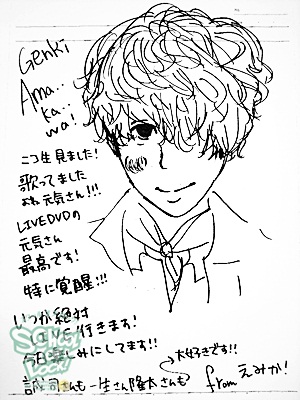 Genki
Ama..
ka..
wa!
ニコ生見ました!
歌ってました
よね 元気さん!!!
LIVE DVDの
元気さん
最高です!
特に覚醒!!!
いつか絶対
LIVE行きます!
今日楽しみにしてます!!
大好きです!!
誠司さんも一生さん隆太さんも
from えみか!